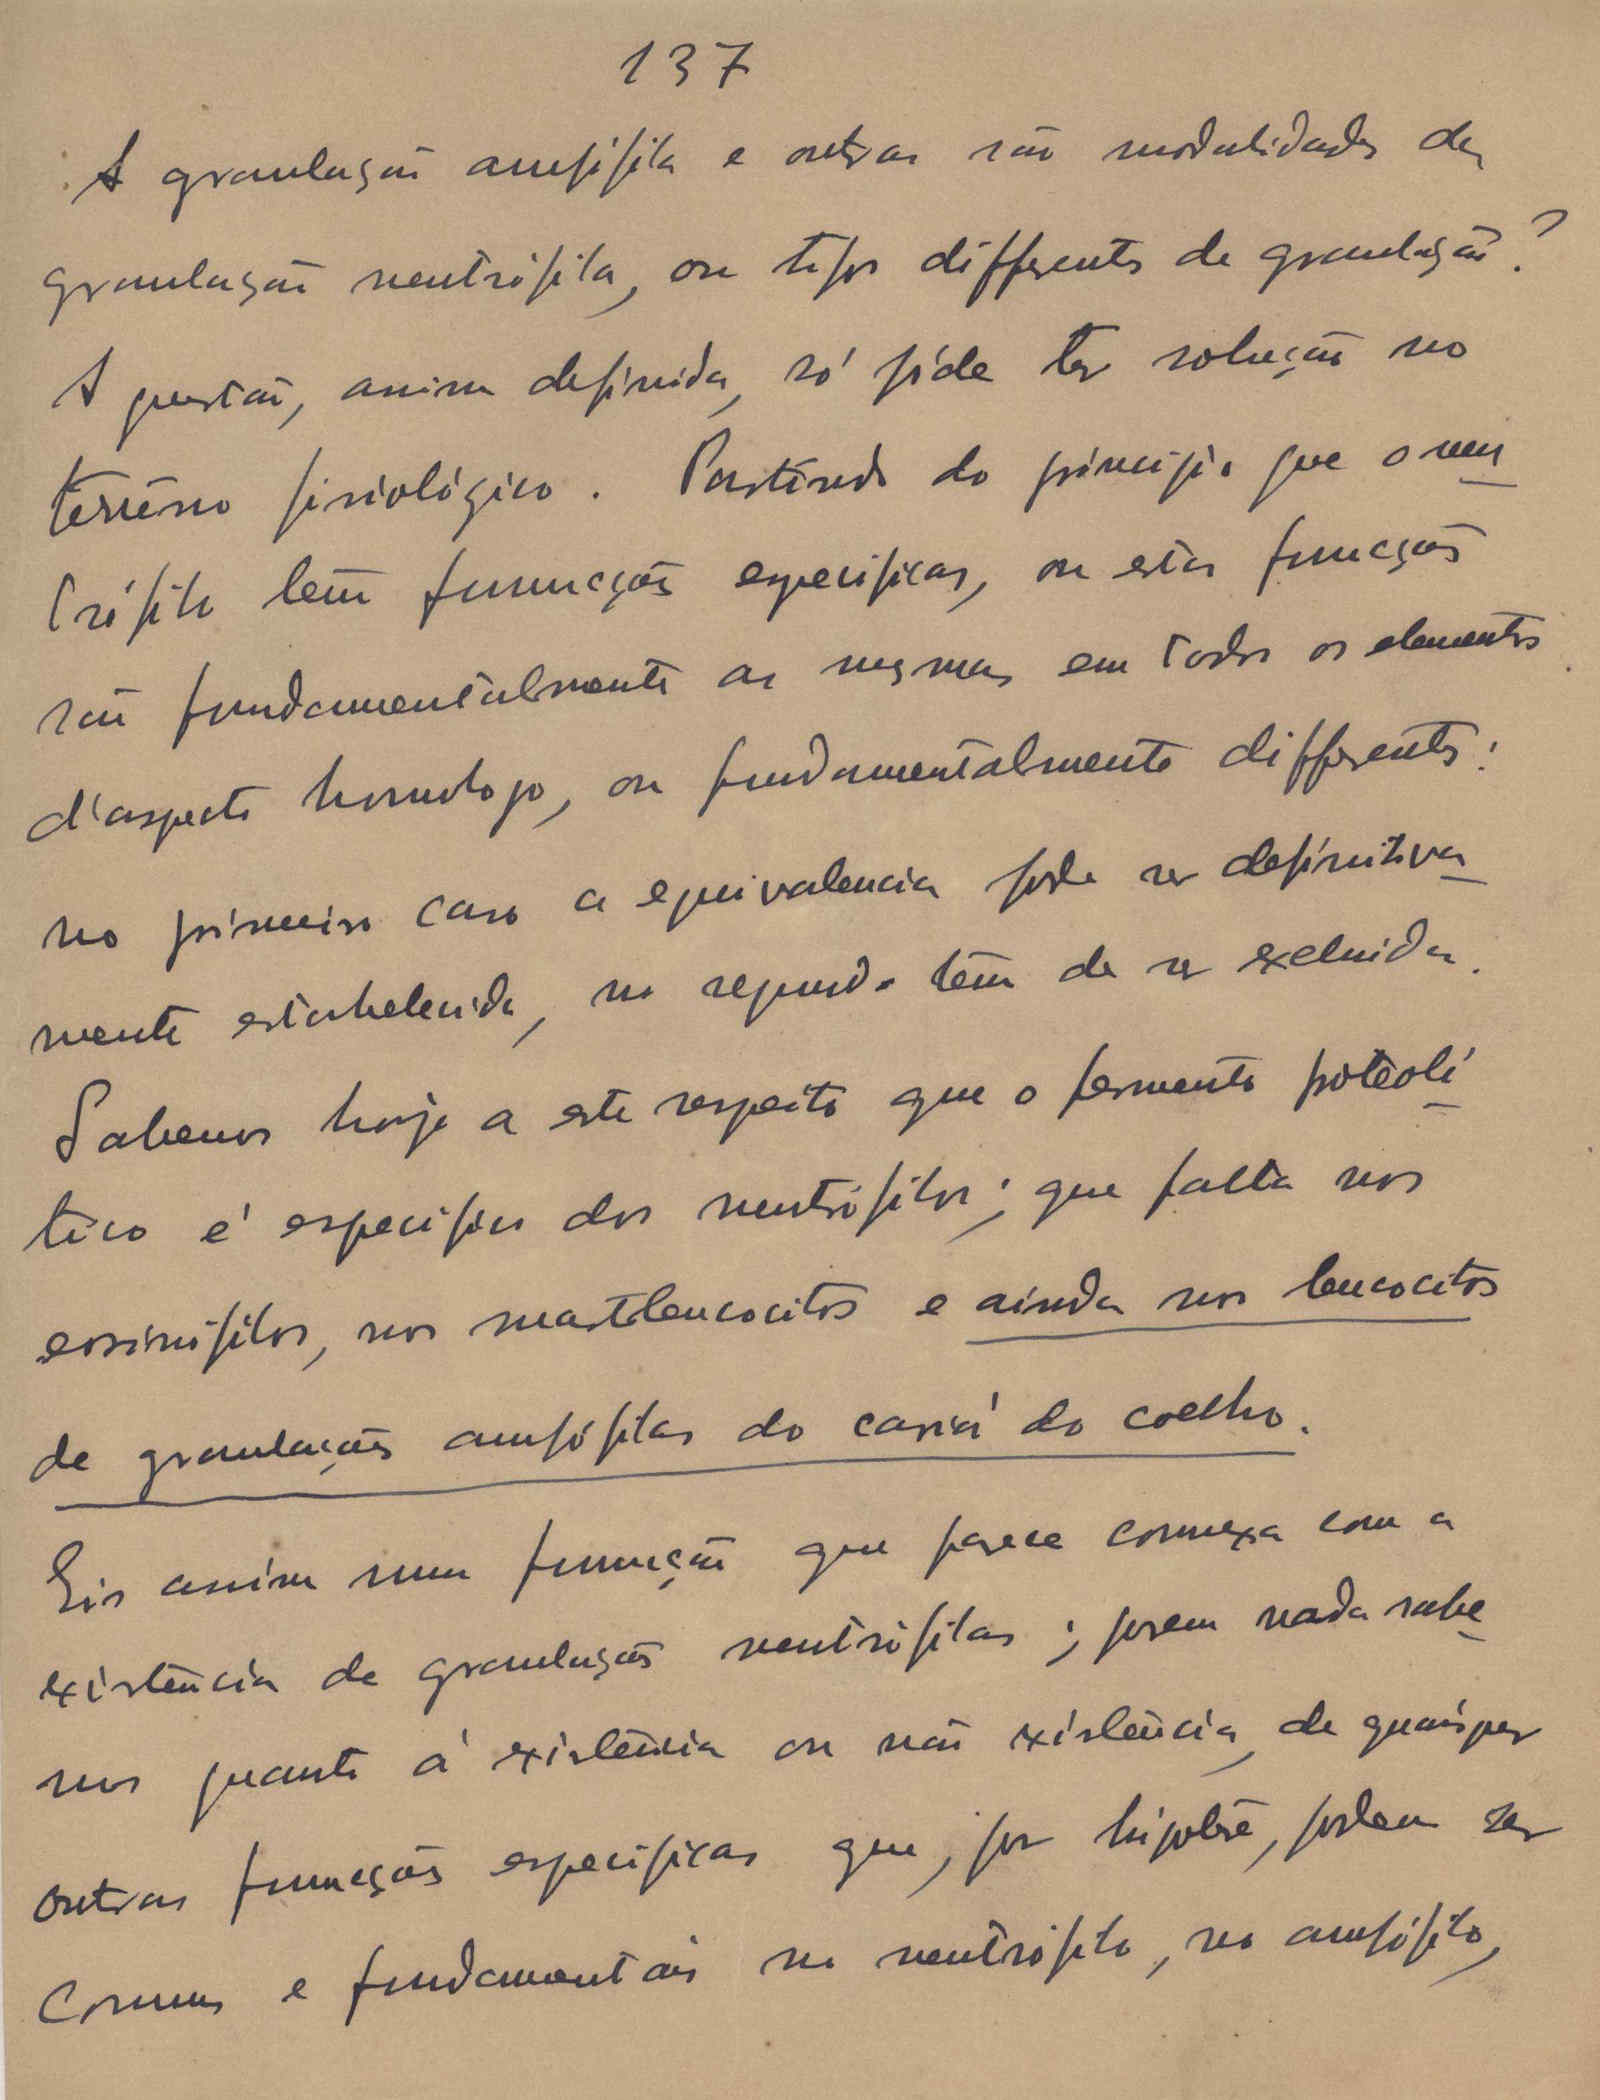 137
A granulação anfófila e outras são modalidades da
granulação neutrófila, ou tipos differentes de granulação?
A questão, assim definida, só póde ter solução no
terreno fisiológico. Partindo do principio que o neu
trófilo tem funcções especificas, ou estas funcções
são fundamentalmente as mesmas em todos os elementos
d'aspecto homologo, ou fundamentalmente differentes:
no primeiro caso a equivalencia pode ser definitiva
mente estabelecida, no segundo têm de ser excluida.
Sabemos hoje a este respeito que o fermento proteolí
tico é especifico dos neutrófilos; que falta nos
eosinófilos, nos mastleucocitos e ainda nos leucocitos
de granulações anfófilas do cariá do coelho.
Eis assim uma funcção que parece connexa com a
existência de granulações neutrófilas; porem nada sabe
mos quanto á existência ou não existência, de quaisquer
outras funcções especificas que, por hipótese, podem ser
comuns e fundamentais no neutrófilo, no anfófilo,